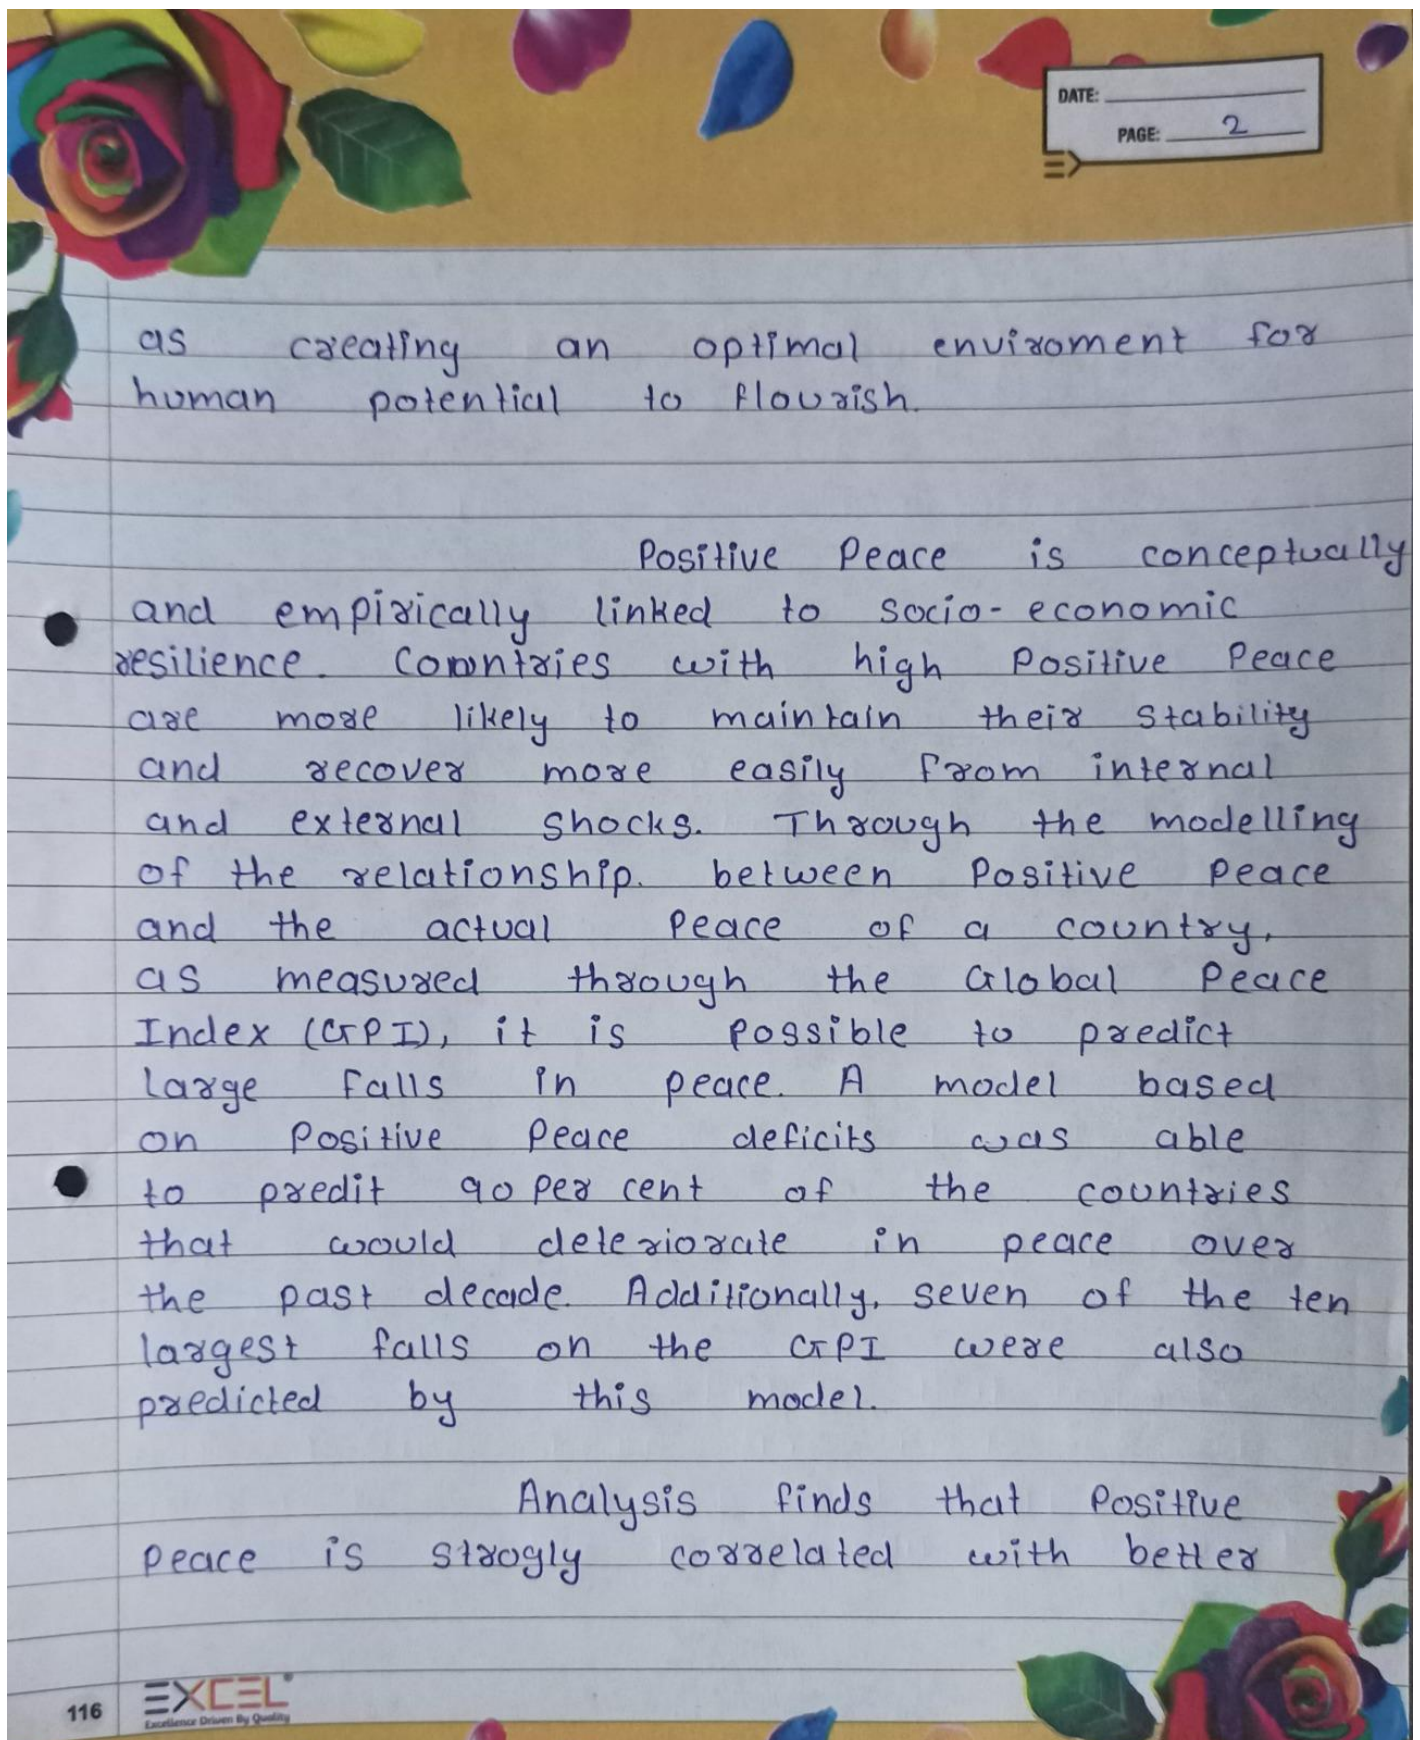 DATE:
PAGE: 2
as creating an optimal enviroment for
human potential to flourish.
Positive Peace is conceptually
and empirically linked to socio-economic
resilience. Countries with high Positive Peace
are more likely to maintain their stability
and recover more easily from internal
and external shocks. Through the modelling
of the relationship. between Positive Peace
and the actual Peace of a country,
as measured through the Global Peace
Index (GPI), it is possible to predict
large falls in peace. A model based
on Positive Peace deficits was able
to predit 90 per cent of the countries
that would deteriorate in peace over
the past decade. Additionally, seven of the ten
largest falls on the GPI were also
predicted by this model.
Analysis finds that Positive
Peace is strogly correlated with better
116
EXCEL
Excellence Driven By Quality